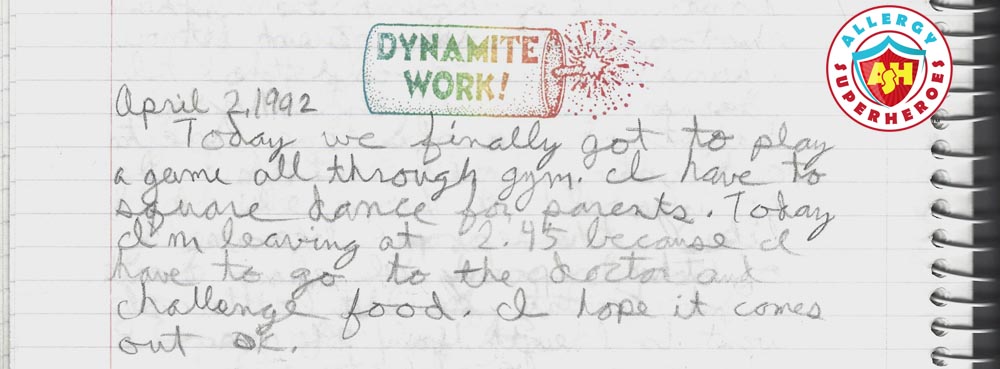 DYNAMITE
WORK!
ALLERGY
SUPERHEROES
ASH
April 2, 1992
Today we finally got to play
a game all through gym. I have to
square dance for parents. Today
I'm leaving at 2:45 because I
have to go to the doctor and
challenge food. I hope it comes
out ok.